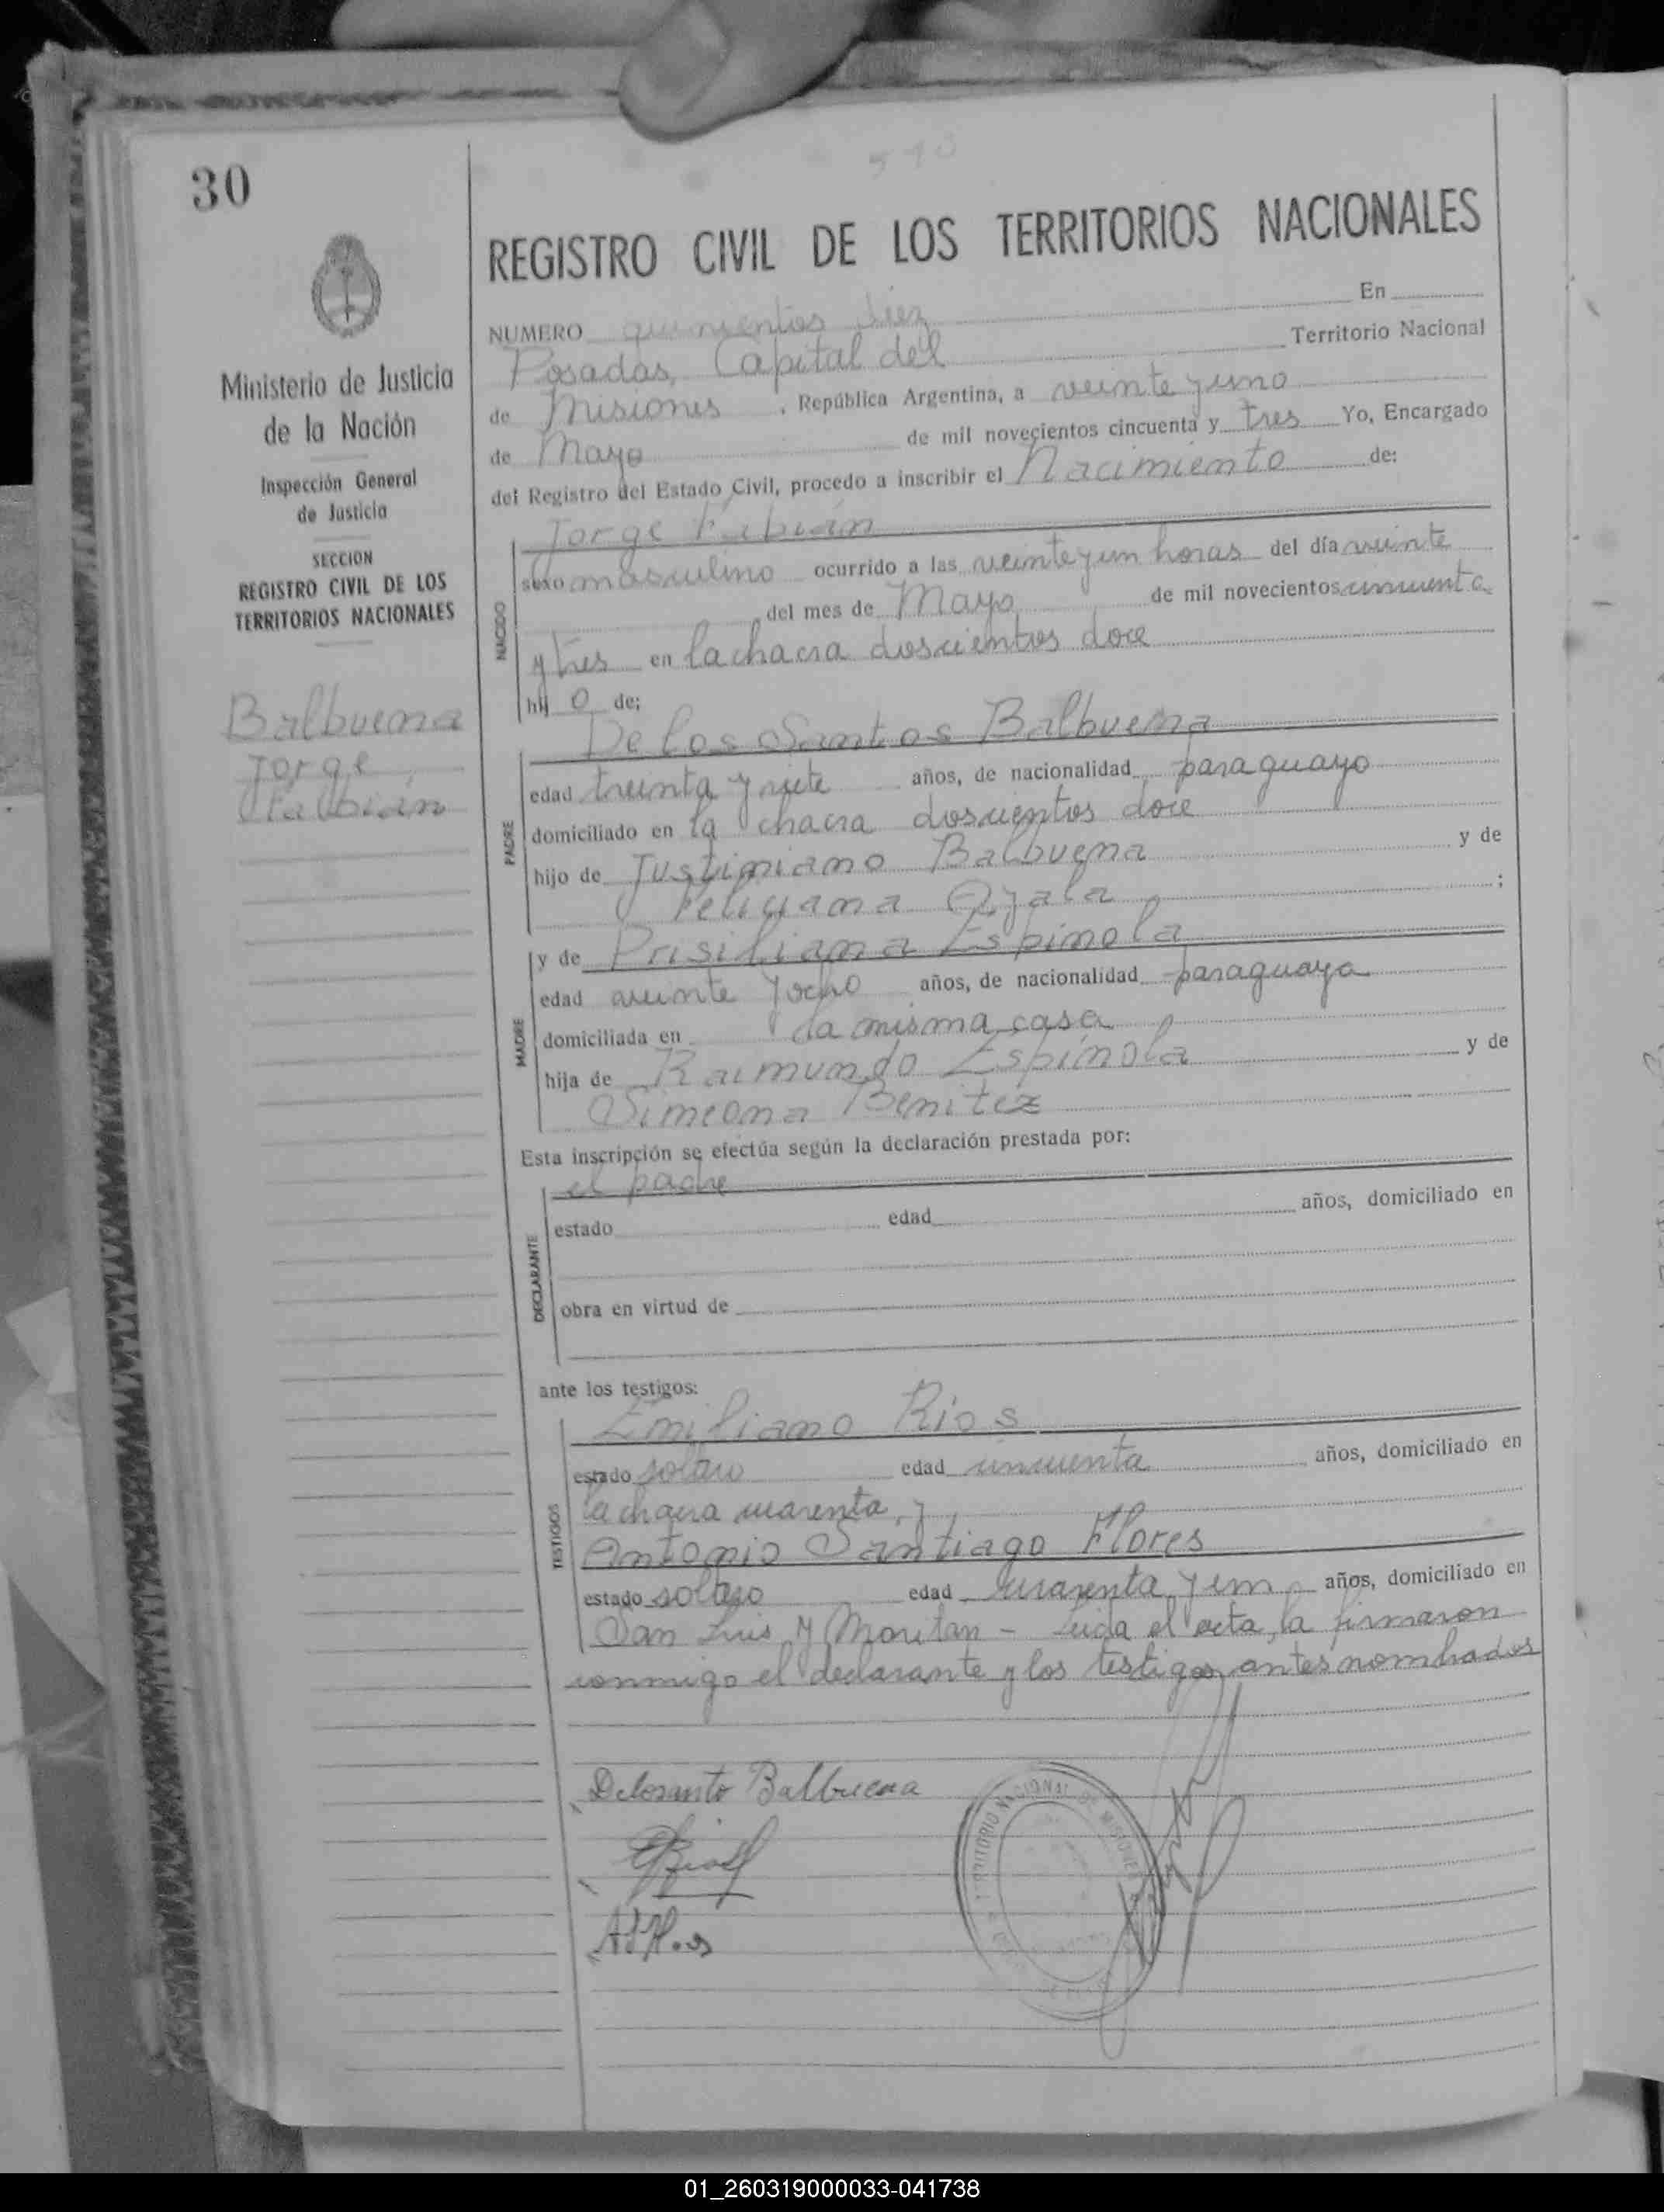 30
510
REGISTRO CIVIL DE LOS TERRITORIOS NACIONALES
Ministerio de Justicia
de la Nación
Inspección General
de Justicia
SECCION
REGISTRO CIVIL DE LOS
TERRITORIOS NACIONALES
Balbuena
Jorge
Fabián
NUMERO quinientos diez En
Posadas, Capital del Territorio Nacional
de Misiones, República Argentina, a veinte y uno
de Mayo de mil novecientos cincuenta y tres Yo, Encargado
del Registro del Estado Civil, procedo a inscribir el Nacimiento de:
NACIDO
Jorge Fabián
sexo masculino ocurrido a las veinte y un horas del día veinte
del mes de Mayo de mil novecientos cincuenta
y tres en la chacra doscientos doce
hij o de;
PADRE
De los Santos Balbuena
edad treinta y siete años, de nacionalidad paraguayo
domiciliado en la chacra doscientos doce
hijo de Justiniano Balbuena y de
Feliciana Ayala ;
MADRE
y de Prisiliana Espínola
edad veinte y ocho años, de nacionalidad paraguaya
domiciliada en la misma casa
hija de Raimundo Espínola y de
Simeona Benitez
Esta inscripción se efectúa según la declaración prestada por:
DECLARANTE
el padre
estado edad años, domiciliado en
obra en virtud de
ante los testigos:
TESTIGOS
Emiliano Rios
estado soltero edad cincuenta años, domiciliado en
la chacra cuarenta, y
Antonio Santiago Flores
estado soltero edad cuarenta y un años, domiciliado en
San Luis y Moritan - Leida el acta, la firmaron
conmigo el declarante y los testigos antes nombrados
Delosanto Balbuena
TERRITORIO NACIONAL DE MISIONES
01_260319000033-041738